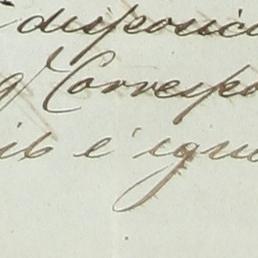 disposici
q̃ Correspo
is é igua